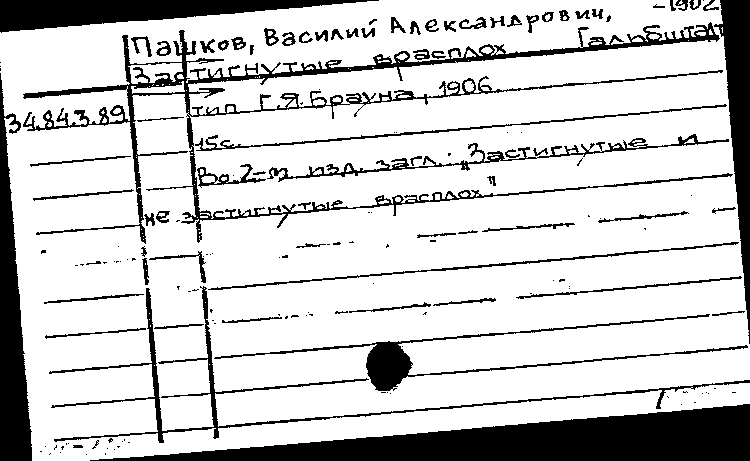 Пашков, Василий Александрович, -1902
Застигнутые врасплох. Гальбштадт
34.84.3.89 тип. Г.Я. Брауна, 1906.
15с.
Во 2-м изд. загл.: „Застигнутые и
не застигнутые врасплох."